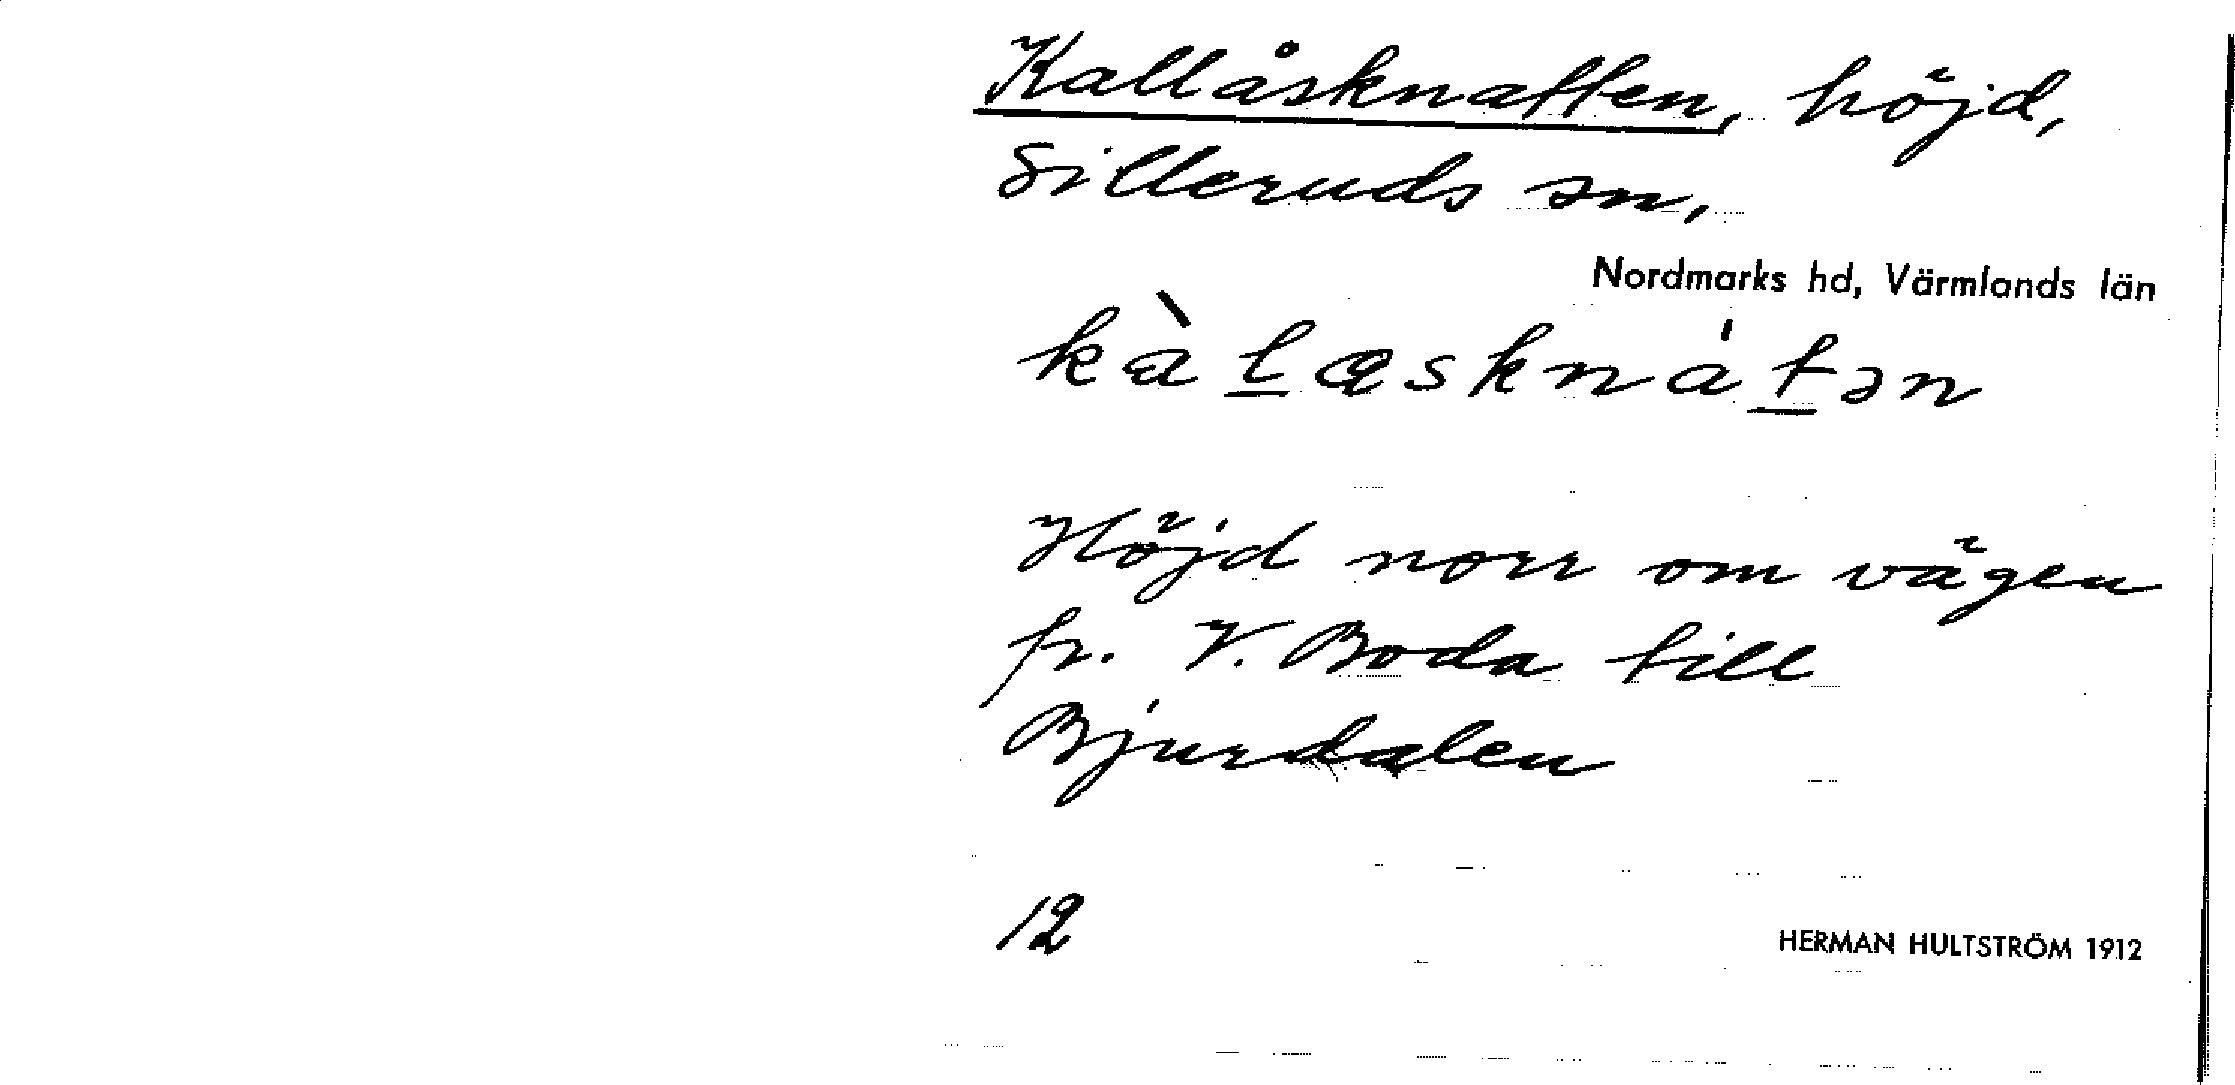 Kallåsknatten, höjd,
Silleruds sn,
Nordmarks hd, Värmlands län
kàl̲ɑsknát̲ən
Höjd norr om vägen
fr. V. Boda till
Bjurdalen
12
HERMAN HULTSTRÖM 1912